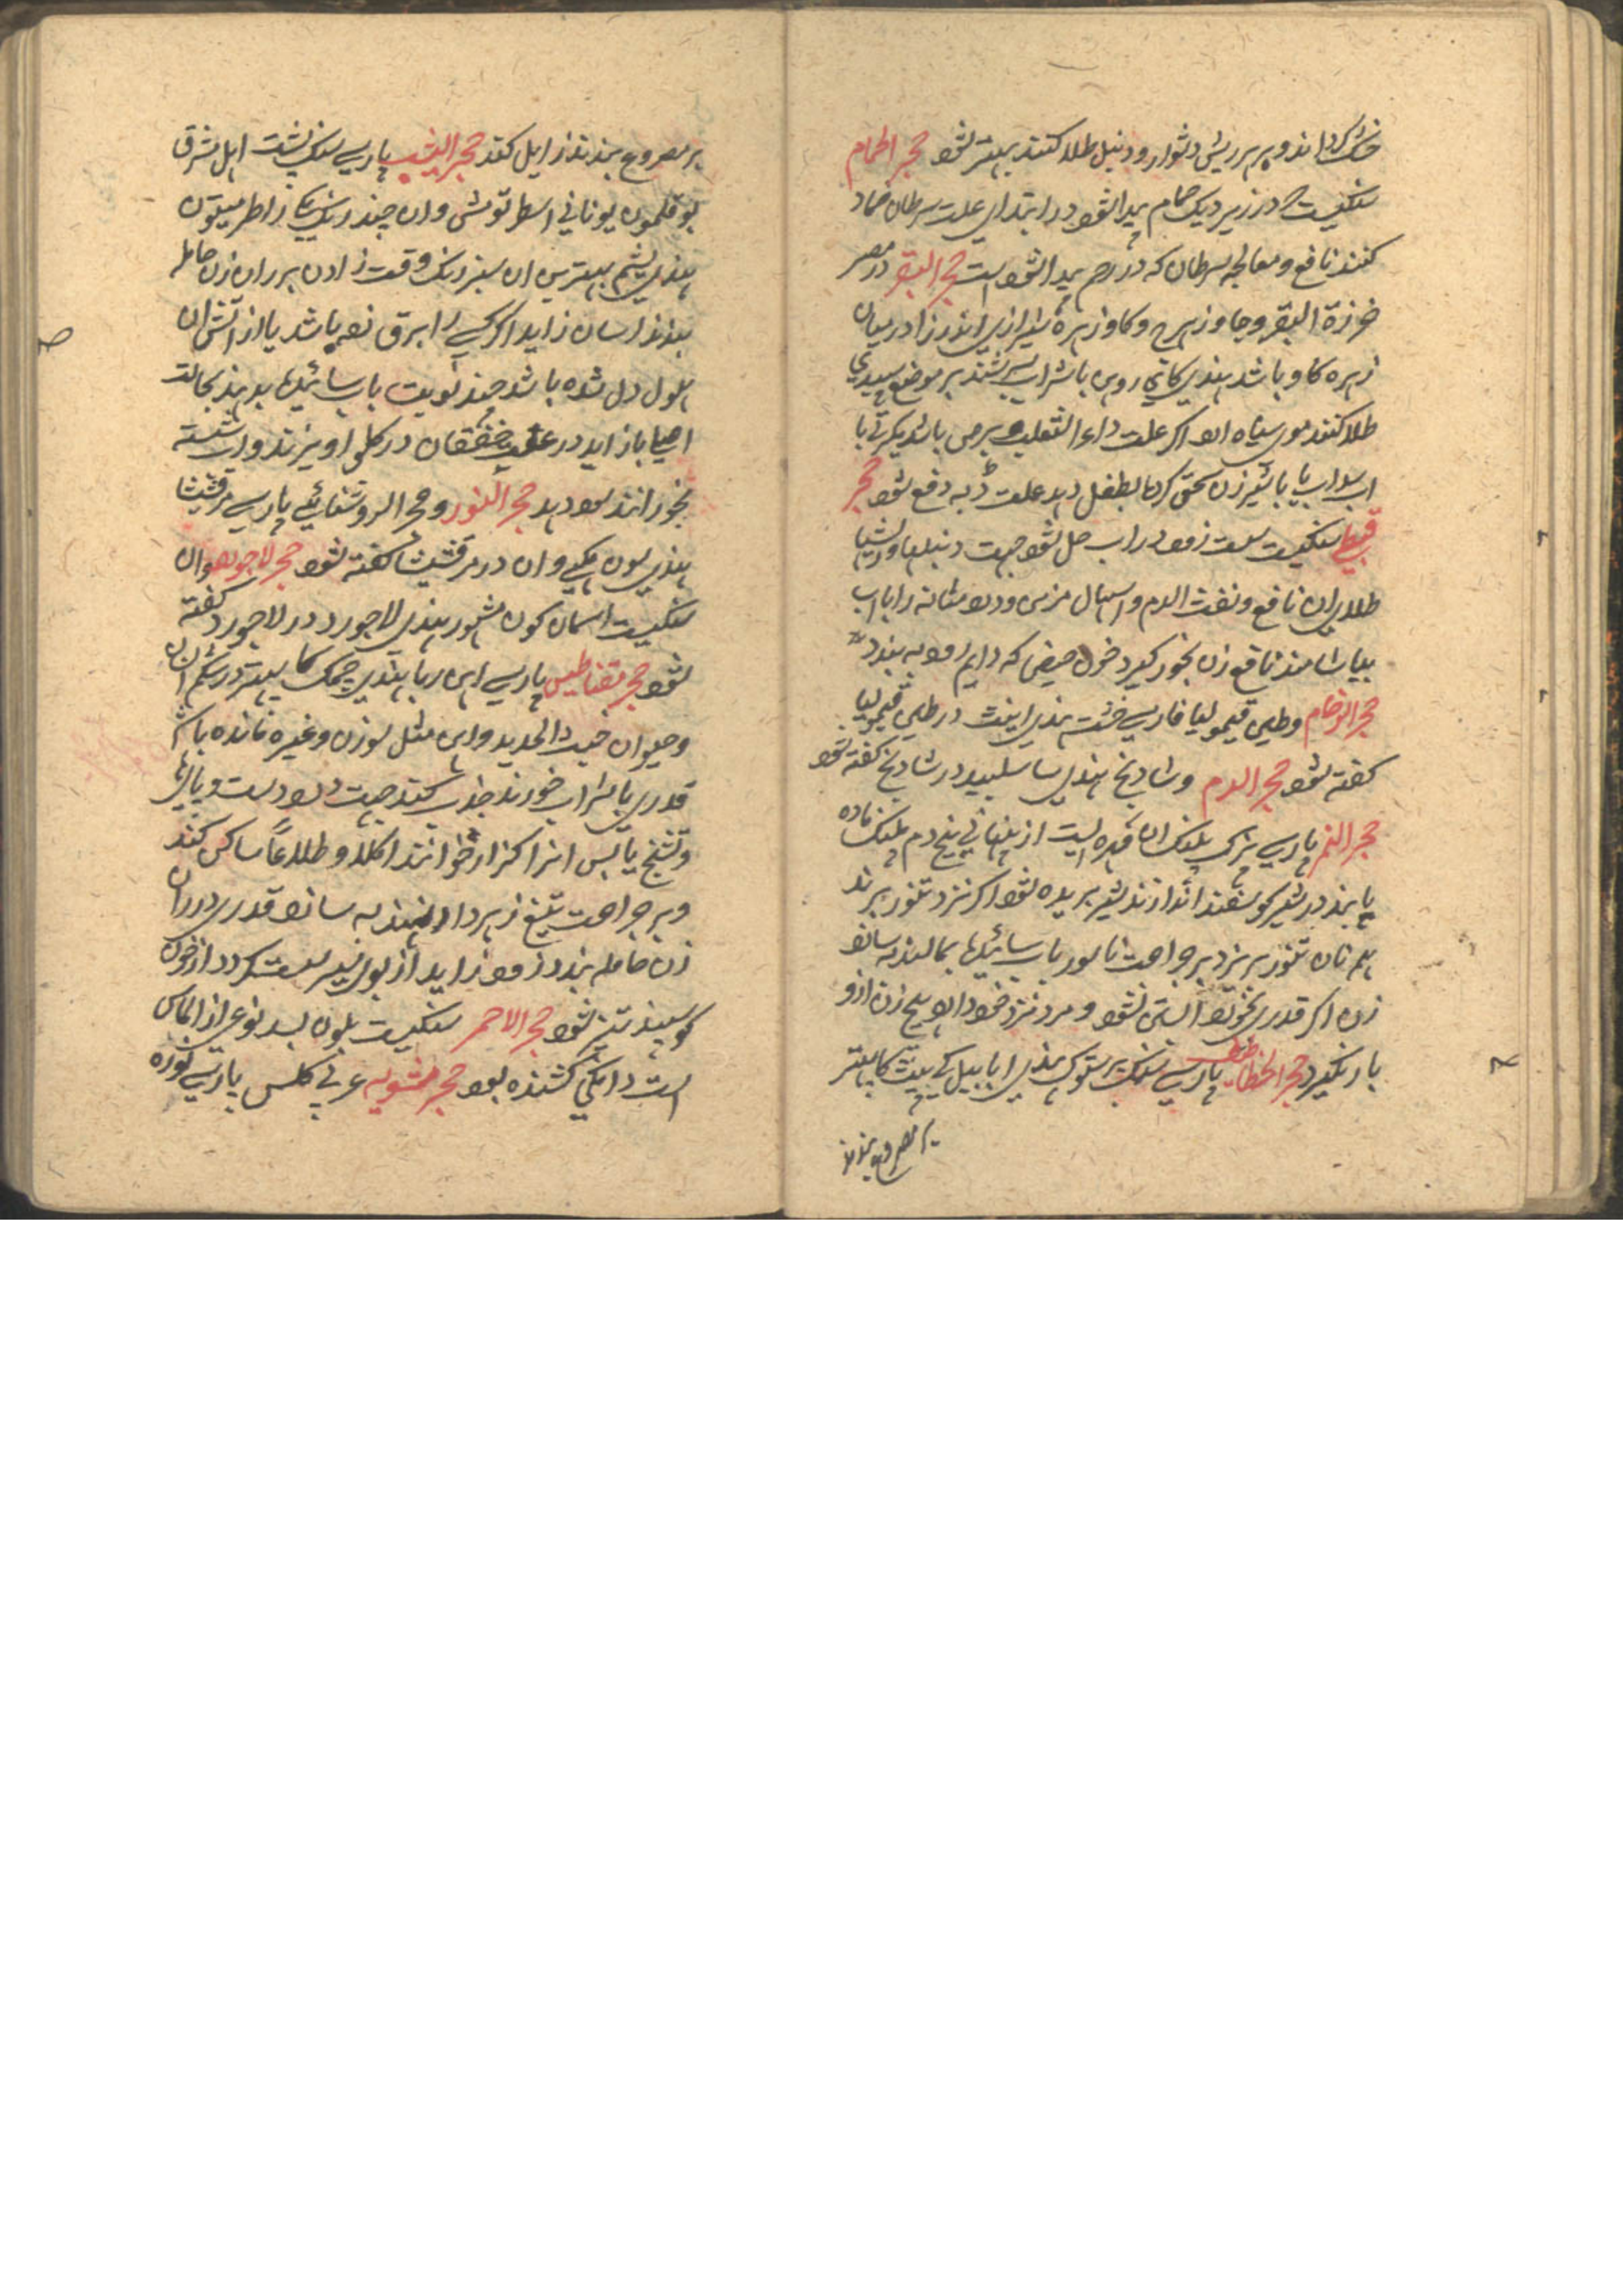 خشک کرده اند و پر بر ریش دشوار و دنبل طلا کنند بهتر شود حجر الحمام
سنکیست که در زیر دیک حمام پیدا شود در ابتدای علت سرطان ضماد
کنند نافع و معالجه سرطان که در رحم پیدا شود است حجر البقر در مصر
خرزة البقر و جاوزهرج و کاوزهره شیرازی اندرزا در میان
زهره کاو باشد هندی کائی روهن با شراب سرشتند بر موضع سپیدی
طلا کنند موی سیاه ارد اکر علت داء الثعلب و برص باشد دیکر تی با
اب با شیر زن سحق کرده بطفل دهد علت ڈبه دفع شود حجر
قبطی سنکیست سست زود در اب حل شود جهت دنبلها و
طلای ان نافع و نفث الدم و اسهال مزمن و درد مثانه را با اب
بیاشامند نافع زن بخور کیرد خون حیض که دایم رود به بندد
حجر الرخام و طین قیمولیا فارسی خشت هندی اینٹ در طین قیمولیا
کفته شود حجر الدم و شادنج هندی در شادنج کفته شود
حجر النمر پارسی سنک پلنک ان غده ایست از پنهانی بیخ دم پلنک ماده
یابند در شیر کوسفند اندازند شیر بریده شود اکر نزد تنور برند
هم نان تنور بریزد بر جراحت ناسور باب سائیده بمالند به سازد
زن اکر قدری بخورد ابستن نشود و مرد نزد خود دارد هیچ زن ازو
بار نکیرد حجر الخطاطیف پارسی سنک پرستوک هندی ابابیل کے پیٹ کا پتهر
بر مصروع بندند
بر مصروع بندند زایل کند حجر الیشب پارسی سنک یشت اهل مشرق
بوقلمون یونانی وان چند رنک
هندی یشم بهترین ان سبز رنک وقت زادن بر ران زن حامله
بندند اسان زاید اکر کسی را برق زده باشد یا از اتش ان
هول دل شده باشد چند نوبت باب سائیده بدهند بحالت
احیا باز اید در علت خفقان در کلو اویزند و اب شسته
بخورانند سود دهد حجر النور و حجر الروشنائی پارسی مرقشیشا
هندی سون مکهی و ان در مرقشیشا کفته شود حجر لاجورد و ان
سنکیست اسمان کون مشهور هندی لاجورد در لاجورد کفته
شود حجر مقناطیس پارسی اهن ربا هندی چمک کا پتهر در شکم انسان
و حیوان خبث الحدید و اهن مثل سوزن و غیره مانده باشد
قدری با شراب خورند جذب کند جهت درد دست و پایها
و تشنج یابس انرا کزاز خوانند اکلا و طلاءً ساکن کند
و بر جراحت تیغ زهردار نهند به سازد قدری در ران
زن حامله بندد زود زاید از بوی سیر سست کردد از خون
کوسپند تیز شود حجر الاحمر سنکیست بلون بسد نوعی از الماس
است دانکی کشنده بود حجر مشویه عربی کلس پارسی نوره